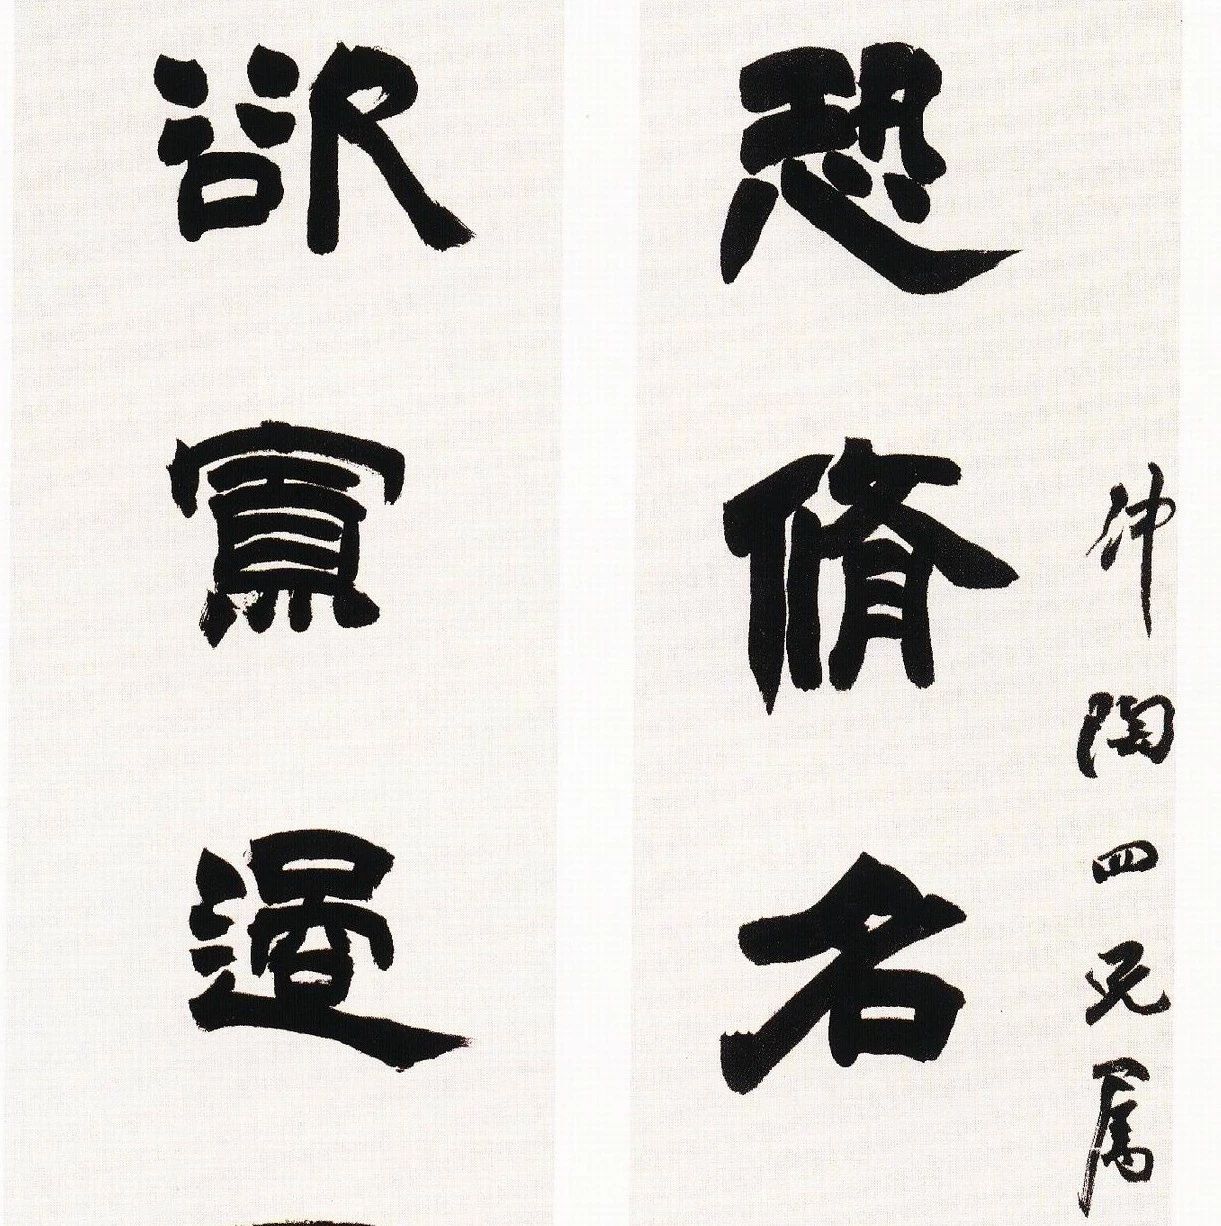 沖陶四兄属
恐脩名
欲寡過